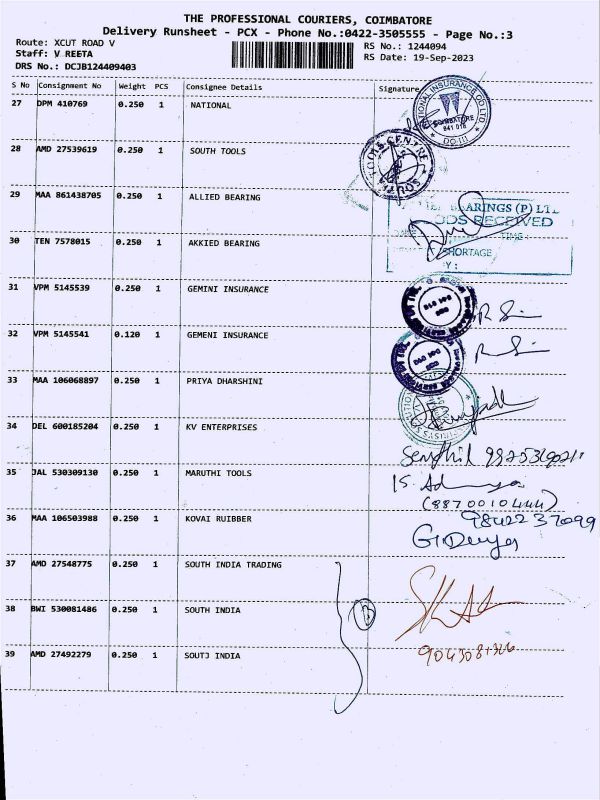 THE PROFESSIONAL COURIERS, COIMBATORE
Delivery Runsheet - PCX - Phone No.:0422-3505555 - Page No.:3
Route: XCUT ROAD V
RS No.: 1244094
Staff: V REETA
RS Date: 19-Sep-2023
DRS No.: DCJB124409403
S No Consignment No Weight PCS Consignee Details Signature
27 DPM 410769 0.250 1 NATIONAL
COIMBATORE
641 018
28 AMD 27539619 0.250 1 SOUTH TOOLS
TOOLS CENTRE
29 MAA 861438705 0.250 1 ALLIED BEARING
BEARINGS (P) LT
GOODS RECEIVED
30 TEN 7578015 0.250 1 AKKIED BEARING
TIME
SHORTAGE
Y:
31 VPM 5145539 0.250 1 GEMINI INSURANCE
32 VPM 5145541 0.120 1 GEMENI INSURANCE
33 MAA 106068897 0.250 1 PRIYA DHARSHINI
34 DEL 600185204 0.250 1 KV ENTERPRISES
Senthil
35 JAL 530309130 0.250 1 MARUTHI TOOLS
(8870010444)
36 MAA 106503988 0.250 1 KOVAI RUIBBER
9842237099
37 AMD 27548775 0.250 1 SOUTH INDIA TRADING
38 BWI 530081486 0.250 1 SOUTH INDIA
39 AMD 27492279 0.250 1 SOUTJ INDIA